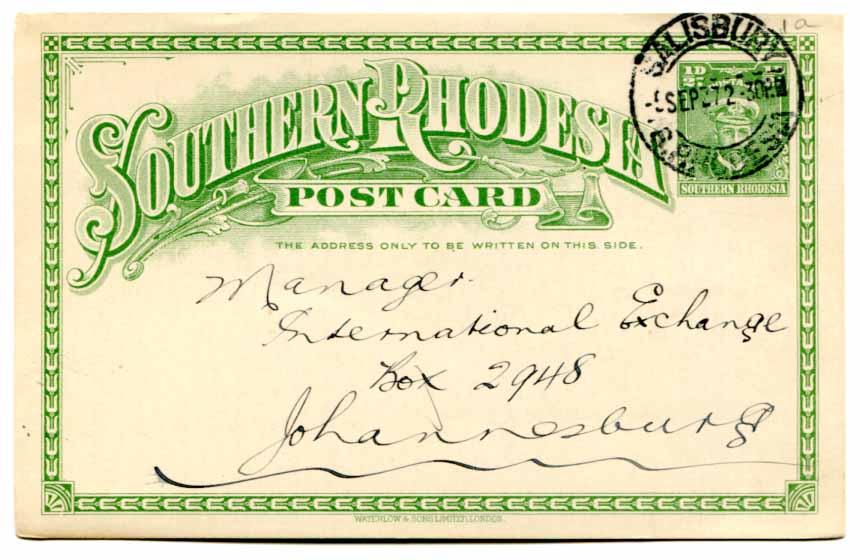 1a
SALISBURY
SEP 27 2-30PM
S. RHODESIA
½D
SOUTHERN RHODESIA
SOUTHERN RHODESIA
POST CARD
THE ADDRESS ONLY TO BE WRITTEN ON THIS SIDE.
Manager.
International Exchange
Box 2948
Johannesburg
WATERLOW & SONS LIMITED, LONDON.